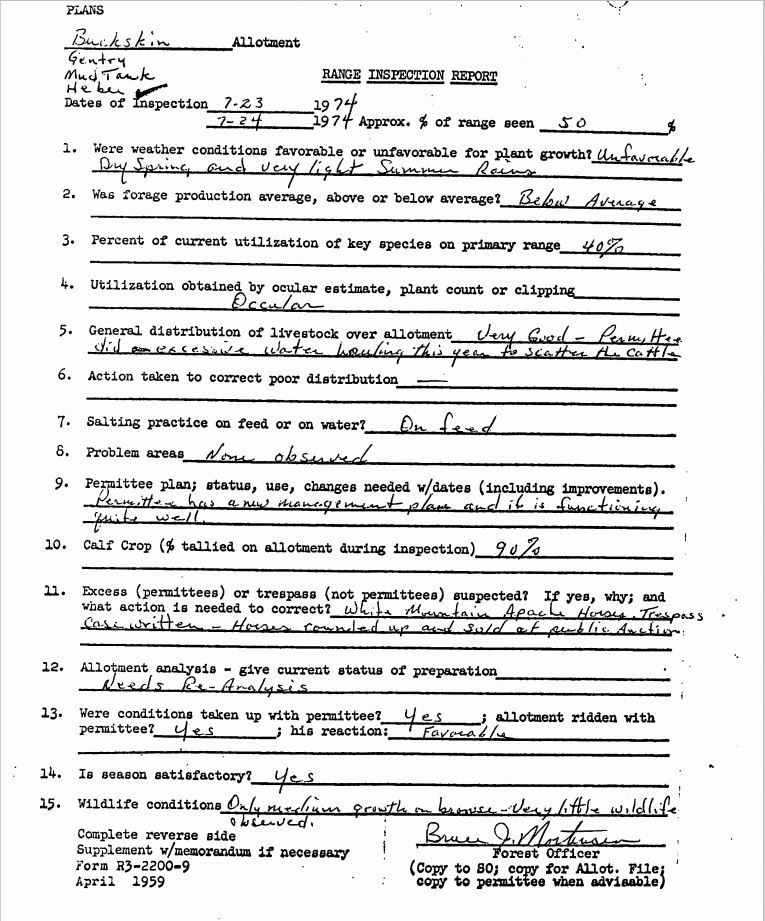 PLANS
Buckskin Allotment
Gentry
Mud Tank
Heber ✓
RANGE INSPECTION REPORT
Dates of Inspection 7-23 1974
7-24 1974 Approx. % of range seen 50 %
1. Were weather conditions favorable or unfavorable for plant growth? Unfavorable
Dry Spring and very light Summer Rains
2. Was forage production average, above or below average? Below Average
3. Percent of current utilization of key species on primary range 40%
4. Utilization obtained by ocular estimate, plant count or clipping
Occular
5. General distribution of livestock over allotment Very Good - Permittee
did excessive water hauling this year to scatter the cattle
6. Action taken to correct poor distribution —
7. Salting practice on feed or on water? On feed
8. Problem areas None observed
9. Permittee plan; status, use, changes needed w/dates (including improvements).
Permittee has a new management plan and it is functioning
quite well.
10. Calf Crop (% tallied on allotment during inspection) 90%
11. Excess (permittees) or trespass (not permittees) suspected? If yes, why; and
what action is needed to correct? White Mountain Apache Horses. Trespass
Case written - Horses rounded up and sold at public Auction.
12. Allotment analysis - give current status of preparation
Needs Re-Analysis
13. Were conditions taken up with permittee? Yes ; allotment ridden with
permittee? Yes ; his reaction: Favorable
14. Is season satisfactory? Yes
15. Wildlife conditions Only medium growth on browse - Very little wildlife
observed.
Complete reverse side
Supplement w/memorandum if necessary
Form R3-2200-9
April 1959
Bruce J. Mortensen
Forest Officer
(Copy to SO; copy for Allot. File;
copy to permittee when advisable)